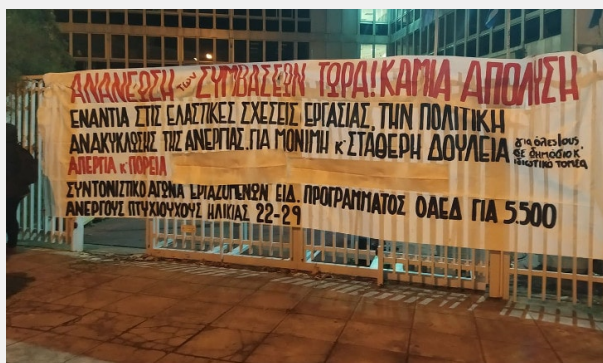 ΑΝΑΝΕΩΣΗ των ΣΥΜΒΑΣΕΩΝ ΤΩΡΑ! ΚΑΜΙΑ ΑΠΟΛΥΣΗ
ΕΝΑΝΤΙΑ ΣΤΙΣ ΕΛΑΣΤΙΚΕΣ ΣΧΕΣΕΙΣ ΕΡΓΑΣΙΑΣ, ΤΗΝ ΠΟΛΙΤΙΚΗ
ΑΝΑΚΥΚΛΩΣΗΣ ΤΗΣ ΑΝΕΡΓΙΑΣ. ΓΙΑ ΜΟΝΙΜΗ κ' ΣΤΑΘΕΡΗ ΔΟΥΛΕΙΑ
για όλες/ους
σε δημόσιο κ'
ιδιωτικό τομέα
ΑΠΕΡΓΙΑ κ' ΠΟΡΕΙΑ
ΣΥΝΤΟΝΙΣΤΙΚΟ ΑΓΩΝΑ ΕΡΓΑΖΟΜΕΝΩΝ ΕΙΔ. ΠΡΟΓΡΑΜΜΑΤΟΣ ΟΑΕΔ ΓΙΑ 5.500
ΑΝΕΡΓΟΥΣ ΠΤΥΧΙΟΥΧΟΥΣ ΗΛΙΚΙΑΣ 22-29